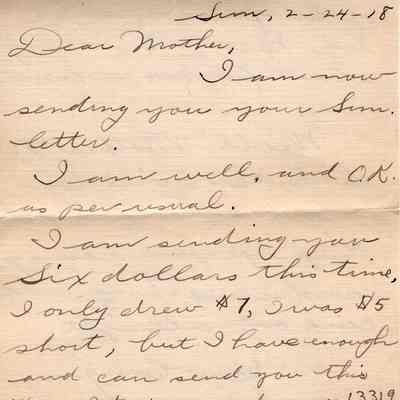 Sun, 2-24-18
Dear Mother,
I am now
sending you your Sun.
letter.
I am well, and O.K.
as per usual.
I am sending you
Six dollars this time,
I only drew $7, I was $5
short, but I have enough
and can send you this
13319